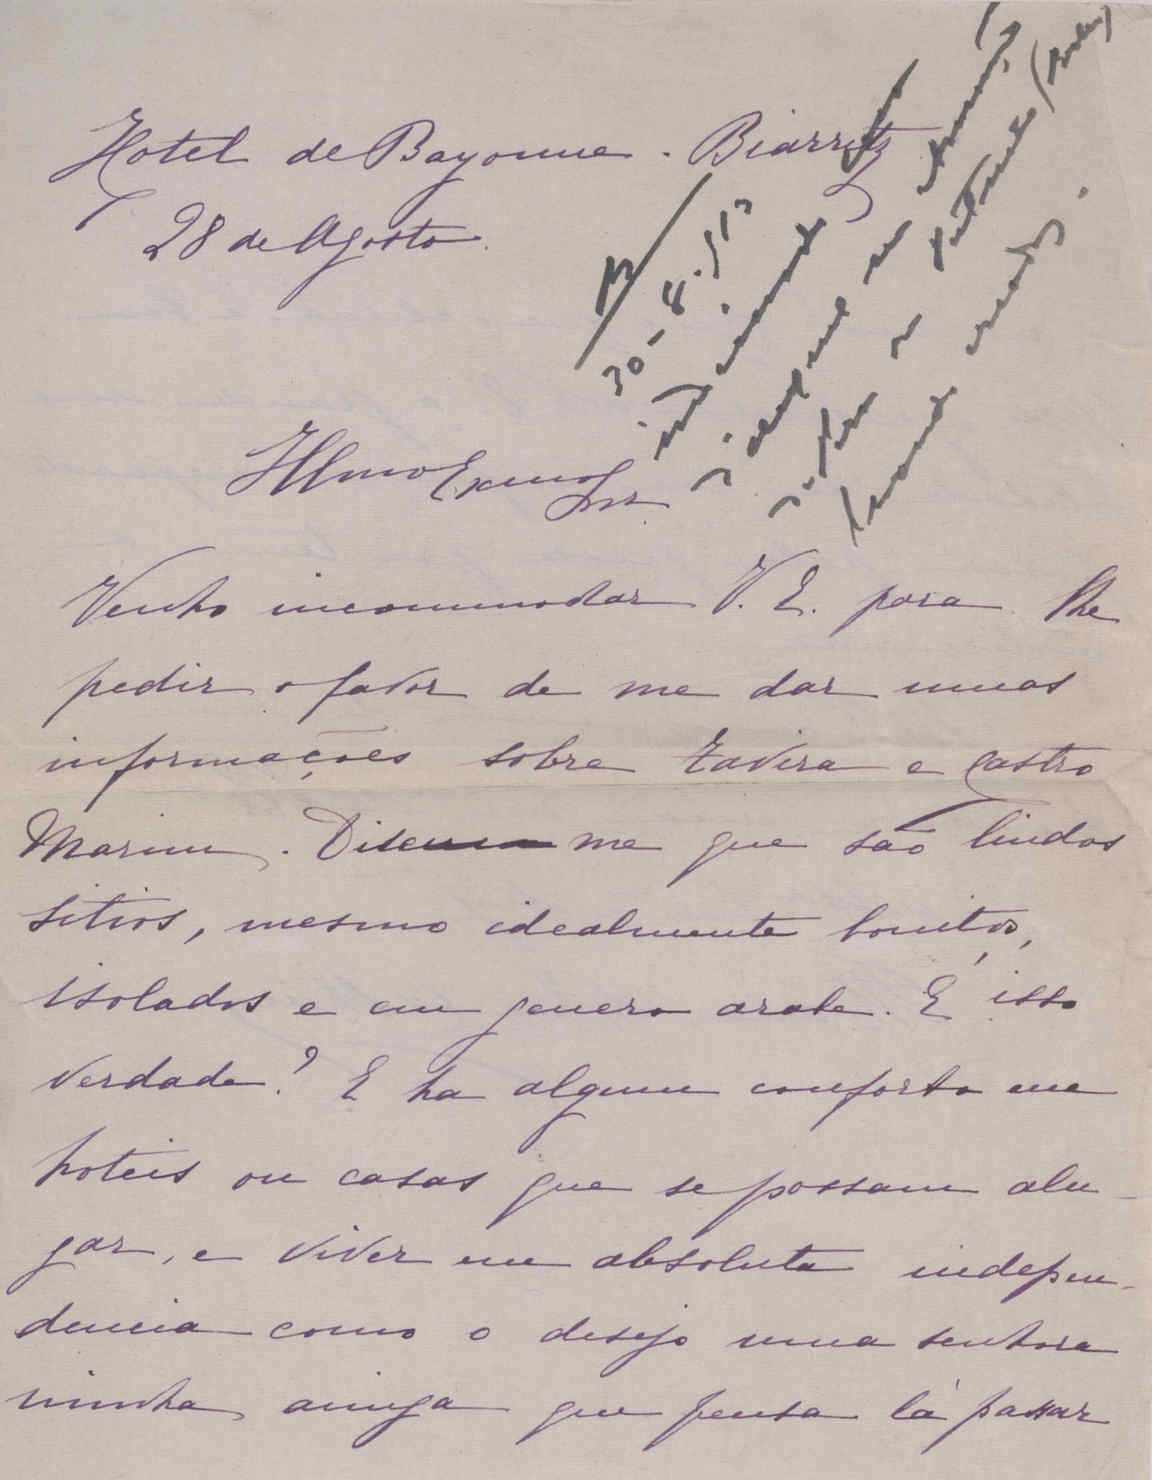 Hotel de Bayonne. Biarritz
28 de Agosto.
R
30-8-913
Illmo Exmo Snr
Venho incommodar V. E. para lhe
pedir o favor de me dar umas
informações sobre Tavira e Castro
Marim. Disseram me que são lindos
sitios, mesmo idealmente bonitos,
isolados e em genero arabe. É isso
verdade? E ha algum conforto em
hoteis ou casas que se possam alu-
gar, e viver em absoluta indepen-
dencia como o deseja uma senhora
minha amiga que pensa lá passar